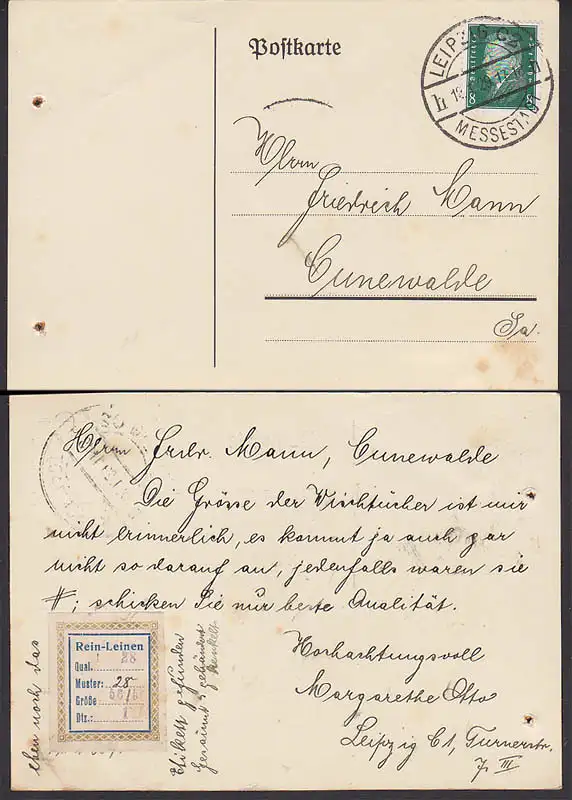 Postkarte
LEIPZIG C2
MESSESTADT
8 8
Herrn
Friedrich Mann
Cunewalde
Sa.
Herrn Frdr. Mann, Cunewalde
Die Grösse der Wischtücher ist mir
nicht erinnerlich, es kommt ja auch gar
nicht so darauf an, jedenfalls waren sie
#; schicken Sie nur beste Qualität.
Hochachtungsvoll
Margarethe Otto
Leipzig C1, Turnerstr.
7 III
eben noch das
Etikett gefunden
gesäumt gebändert
Rein-Leinen
Qual. 28
Muster: 28
Größe 56/
Dtz.: 1